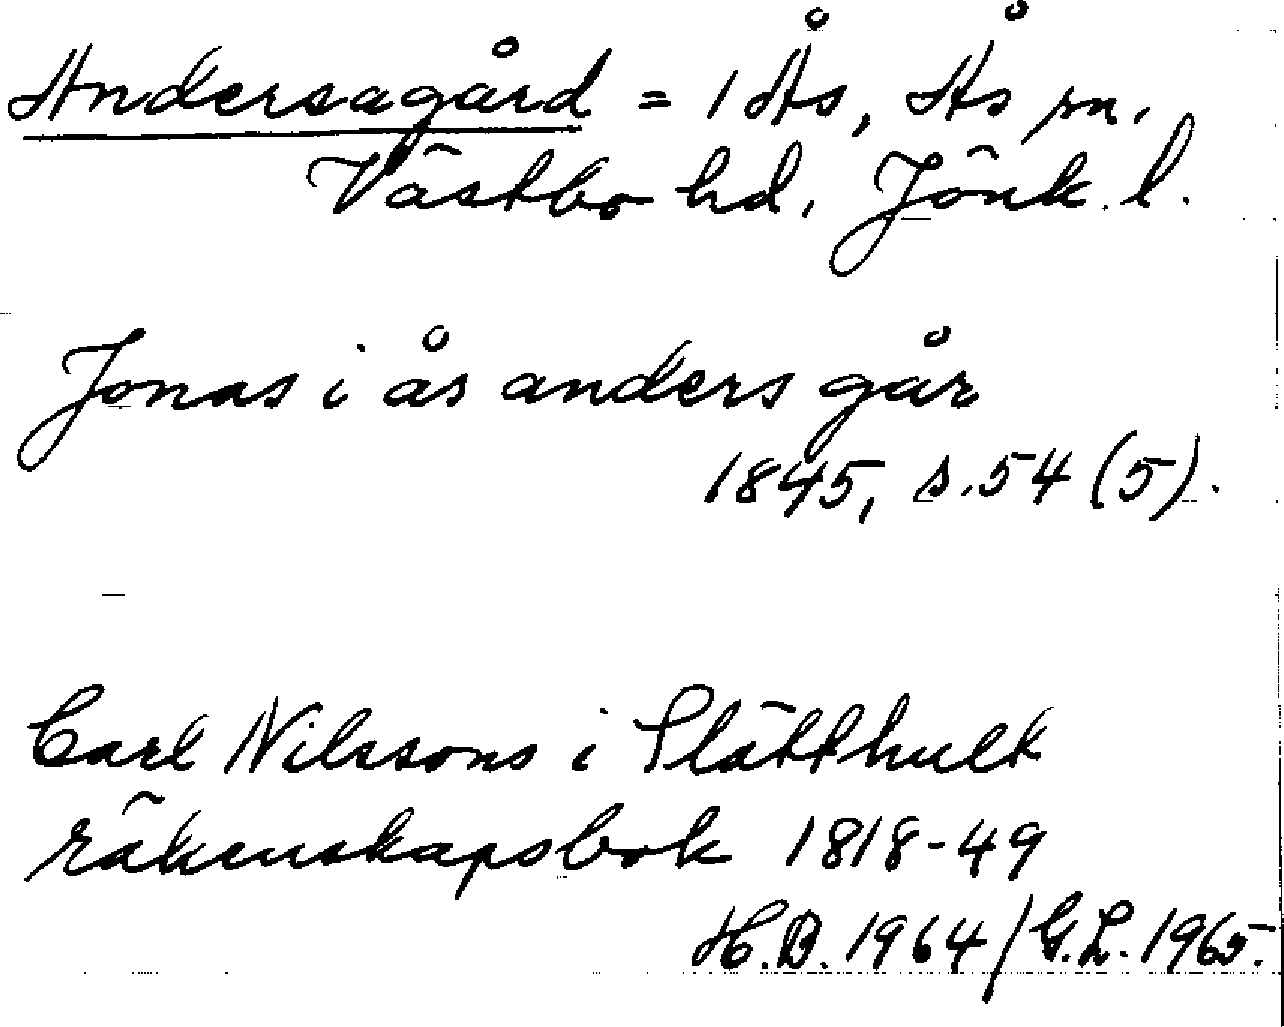 Andersagård = 1 Ås, Ås sn.
Västbo hd, Jönk. l.
Jonas i ås anders går
1845, s. 54 (5).
Carl Nilssons i Slätthult
räkenskapsbok 1818-49
H.B. 1964/G.L. 1965.